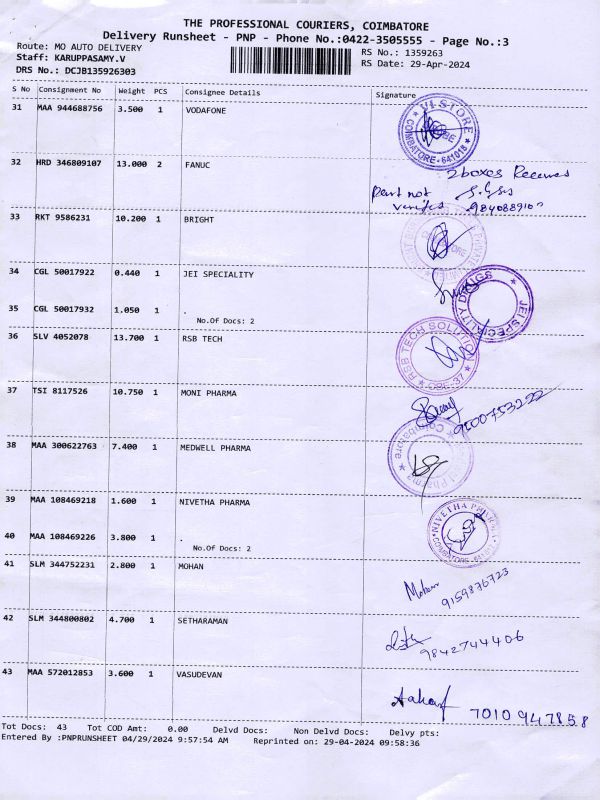 THE PROFESSIONAL COURIERS, COIMBATORE
Delivery Runsheet - PNP - Phone No.:0422-3505555 - Page No.:3
Route: MO AUTO DELIVERY
RS No.: 1359263
Staff: KARUPPASAMY.V
RS Date: 29-Apr-2024
DRS No.: DCJB135926303
S No Consignment No Weight PCS Consignee Details Signature
31 MAA 944688756 3.500 1 VODAFONE
VI-STORE
COIMBATORE - 641018
32 HRD 346809107 13.000 2 FANUC
2 boxes Received
part not
33 RKT 9586231 10.200 1 BRIGHT
34 CGL 50017922 0.440 1 JEI SPECIALITY
JEI SPECIALITY DRUGS
35 CGL 50017932 1.050 1 .
No.Of Docs: 2
36 SLV 4052078 13.700 1 RSB TECH
RSB TECH SOLUTION
CBE-37
37 TSI 8117526 10.750 1 MONI PHARMA
38 MAA 300622763 7.400 1 MEDWELL PHARMA
Coimbatore
39 MAA 108469218 1.600 1 NIVETHA PHARMA
NIVETHA PHARMA
40 MAA 108469226 3.800 1 .
No.Of Docs: 2
41 SLM 344752231 2.800 1 MOHAN
Mohan
9159876723
42 SLM 344800802 4.700 1 SETHARAMAN
9842744406
43 MAA 572012853 3.600 1 VASUDEVAN
7010 947858
Tot Docs: 43 Tot COD Amt: 0.00 Delvd Docs: Non Delvd Docs: Delvy pts:
Entered By :PNPRUNSHEET 04/29/2024 9:57:54 AM Reprinted on: 29-04-2024 09:58:36